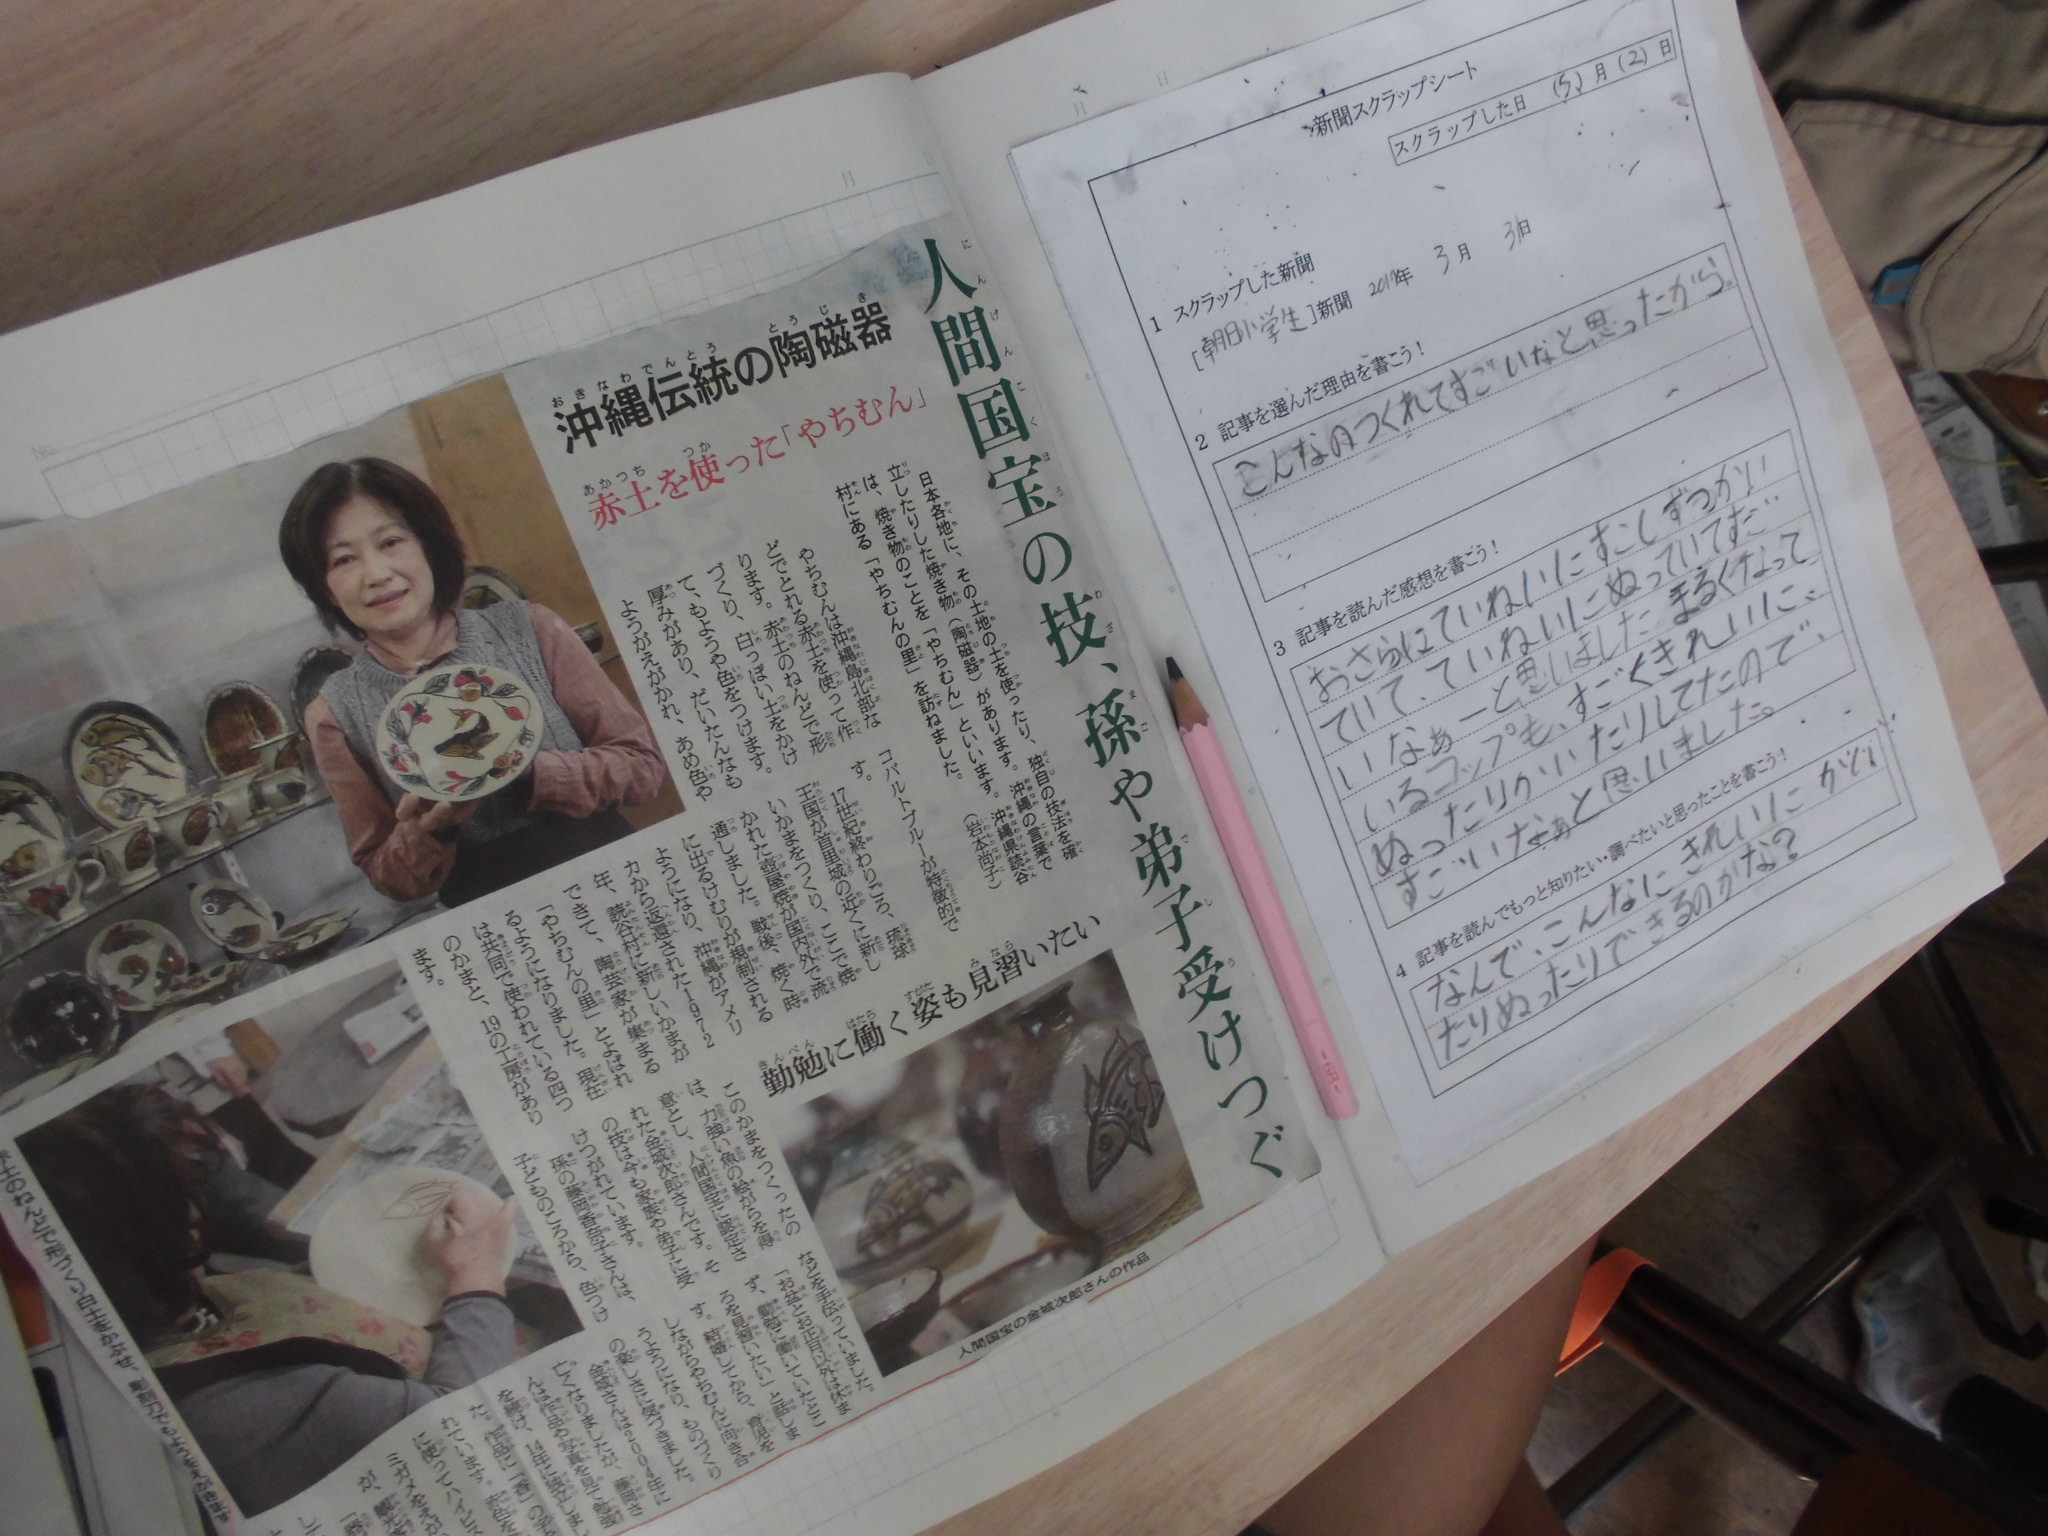 人間国宝の技、孫や弟子受けつぐ
沖縄伝統の陶磁器
赤土を使った「やちむん」
日本各地に、その土地の土を使ったり、独自の技法を確
立したりした焼き物（陶磁器）があります。沖縄の言葉で
は、焼き物のことを「やちむん」といいます。沖縄県読谷
村にある「やちむんの里」を訪ねました。　（岩本尚子）
やちむんは沖縄島北部な
どでとれる赤土を使って作
ります。赤土のねんどで形
づくり、白っぽい土をかけ
て、もようや色をつけます。
厚みがあり、だいたんなも
ようがえがかれ、あめ色や
コバルトブルーが特徴的で
す。
17世紀終わりごろ、琉球
王国が首里城の近くに新し
いかまをつくり、ここで焼
かれた壺屋焼が国内外で流
通しました。戦後、焼く時
に出るけむりが規制される
ようになり、沖縄がアメリ
カから返還された1972
年、読谷村に新しいかまが
できて、陶芸家が集まる
「やちむんの里」とよばれ
るようになりました。現在
は共同で使われている四つ
のかまと、19の工房があり
ます。
勤勉に働く姿も見習いたい
このかまをつくったの
は、力強い魚の絵がらを得
意とし、人間国宝に認定さ
れた金城次郎さんです。そ
の技は今も家族や弟子に受
けつがれています。
孫の藤岡香奈子さんは、
子どものころから、色つけ
などを手伝っていました。
「お盆とお正月以外は休ま
ず、勤勉に働いていたとこ
ろを見習いたい」と話しま
す。結婚してから、育児を
しながらやちむんに向き合
うようになり、ものづくり
の楽しさに気づきました。
金城さんは2004年に
亡くなりましたが、藤岡さ
人間国宝の金城次郎さんの作品
月　日
新聞スクラップシート
スクラップした日　（5）月（2）日
1　スクラップした新聞
［朝日小学生］新聞　2017年　3月　3日
2　記事を選んだ理由を書こう！
こんなのつくれてすごいなと思ったから。
3　記事を読んだ感想を書こう！
おさらにていねいにすこしずつかい
ていて、ていねいにぬっていてすご
いなぁーと思いました まるくなって
いるコップも、すごくきれいに、
ぬったりかいたりしてたので、
すごいなぁと思いました。
4　記事を読んでもっと知りたい・調べたいと思ったことを書こう！
なんで、こんなにきれいにかい
たりぬったりできるのかな？